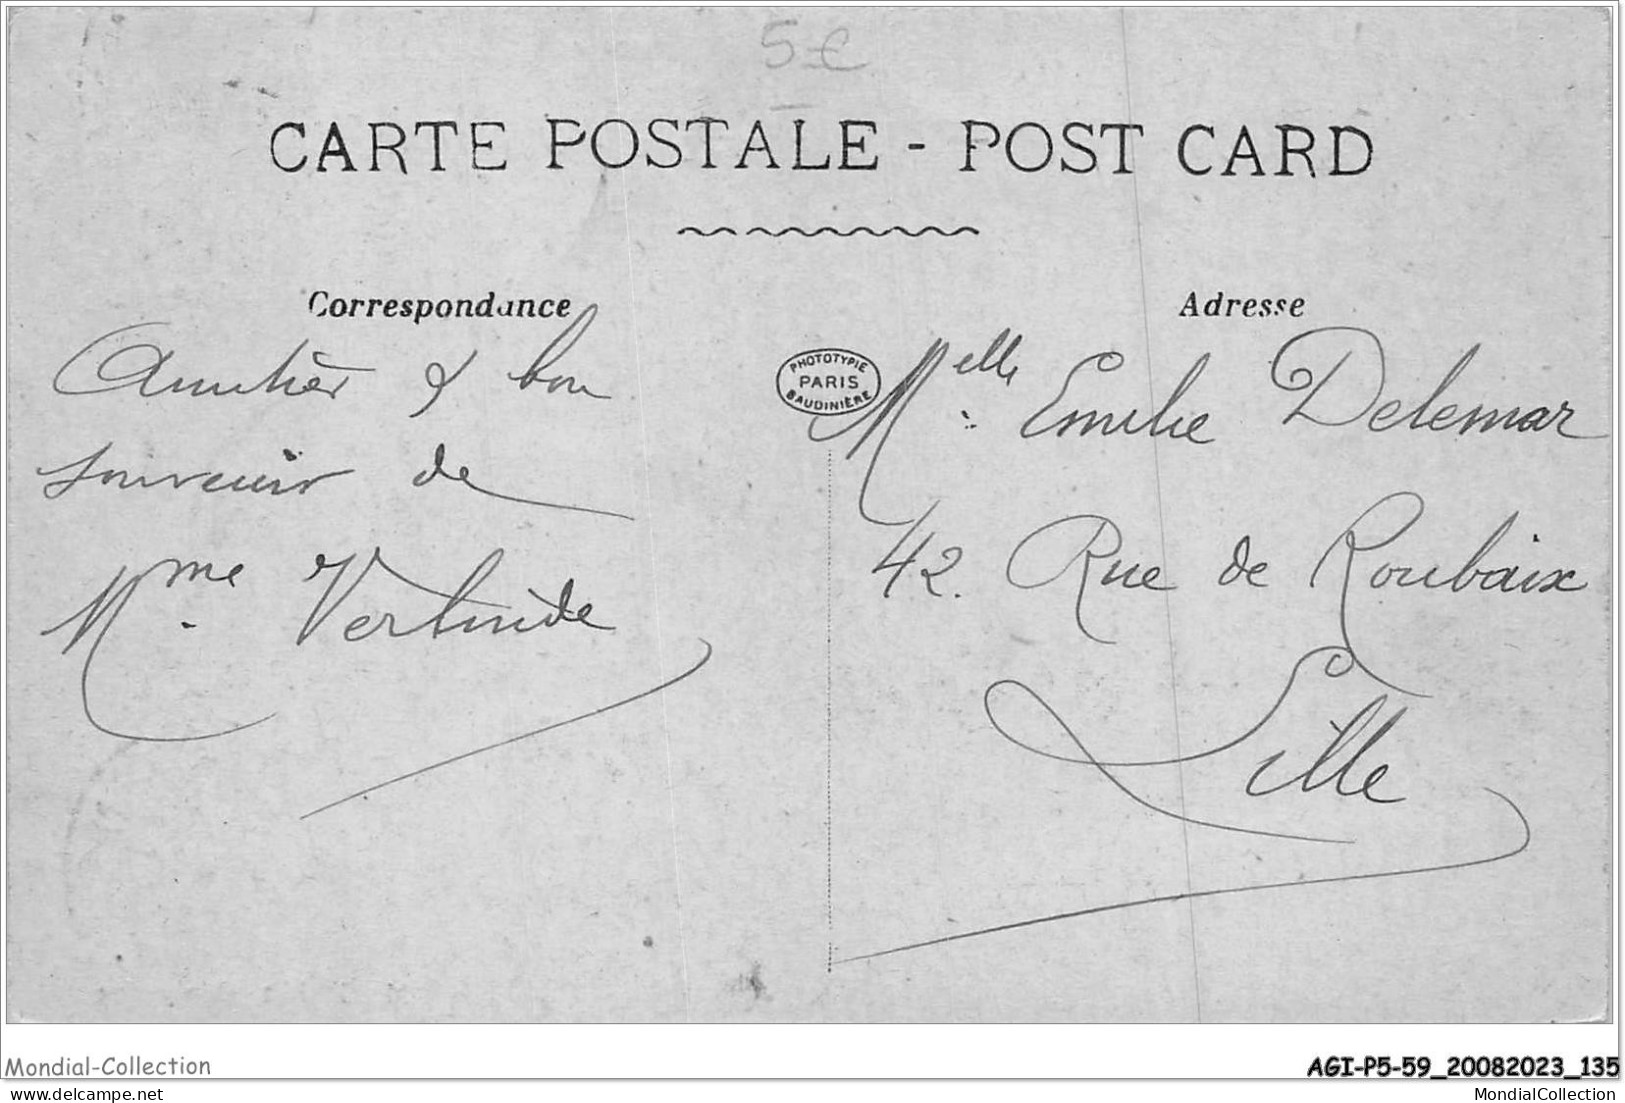 5 €
CARTE POSTALE - POST CARD
Correspondance
Adresse
PHOTOTYPIE
PARIS
BAUDINIÈRE
Amitiés & bon
souvenir de
Mme Vertinide
Melle Emilie Delemar
42. Rue de Roubaix
Lille
Mondial-Collection
AGI-P5-59_20082023_135
delcampe.net
MondialCollection